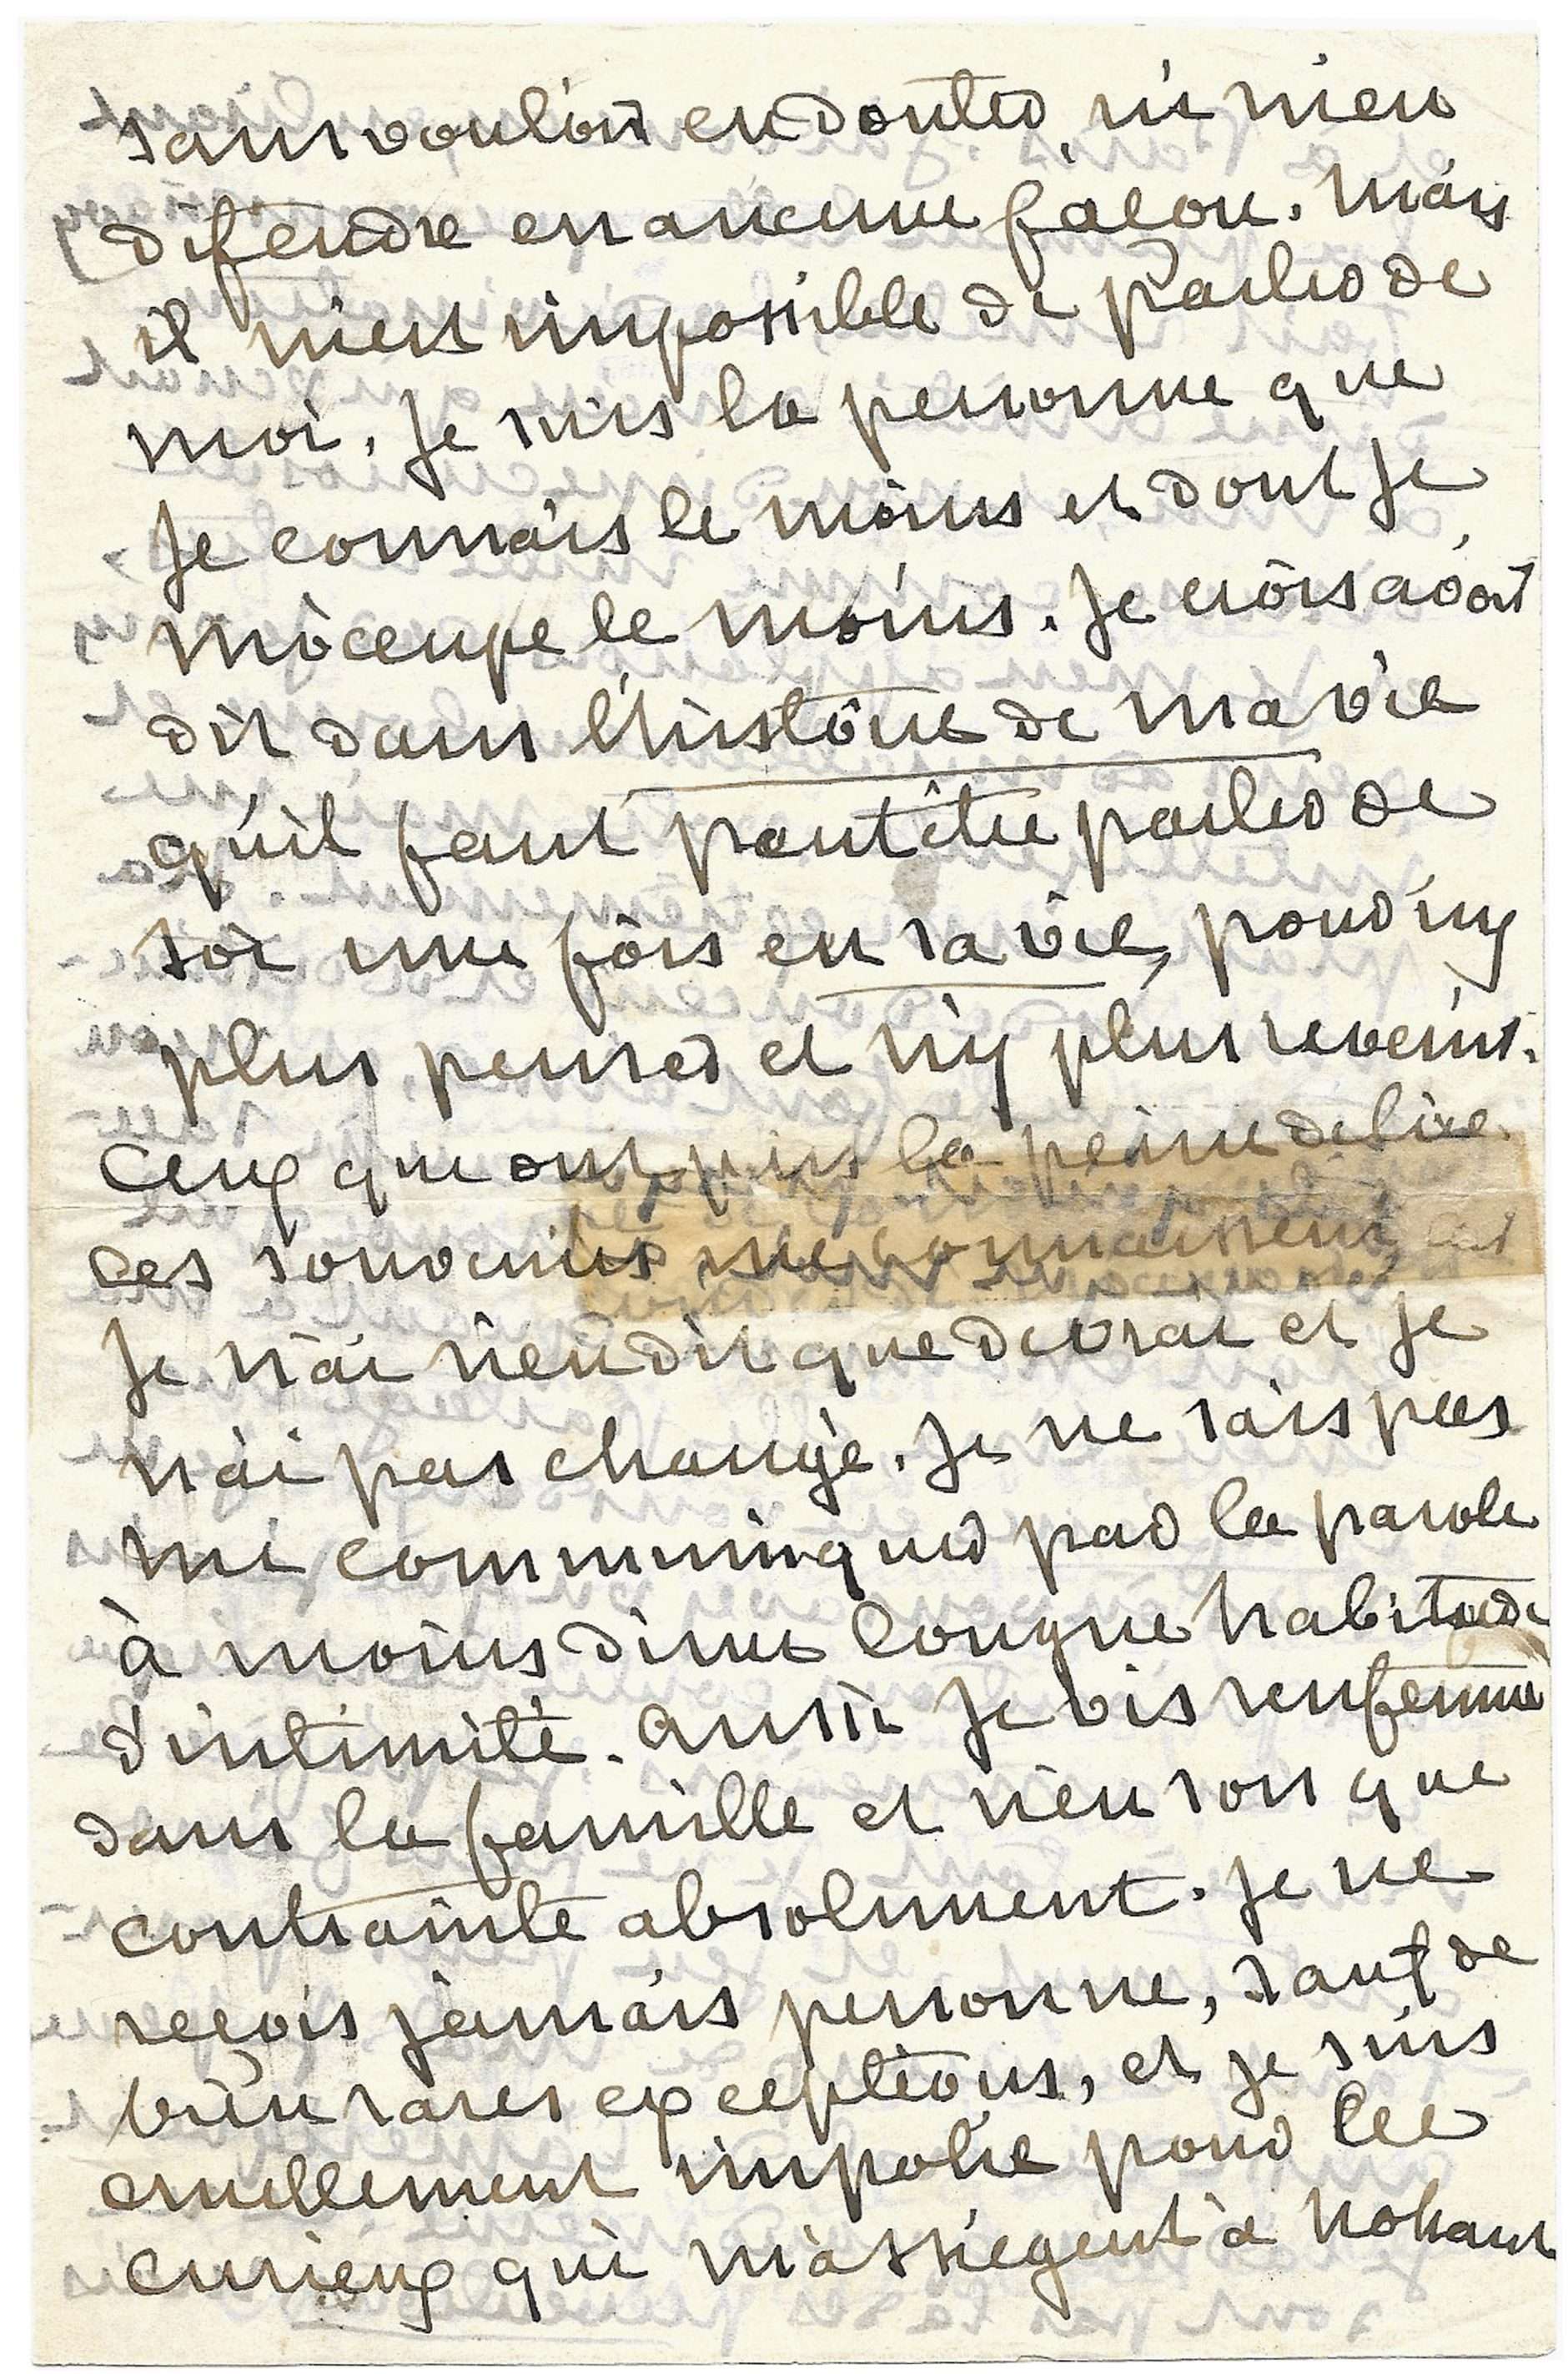 sans vouloir en douter, ni m'en
défendre en aucune façon. Mais
il m'est impossible de parler de
moi. Je suis la personne que
je connais le moins et dont je
m'occupe le moins. Je crois avoir
dit dans l'histoire de ma vie
qu'il faut peut être parler de
soi une fois en sa vie, pour n'y
plus penser et n'y plus revenir.
Ceux qui ont pris la peine de lire
ces souvenirs me connaissent, car
je n'ai rien dit que de vrai et je
n'ai pas changé. Je ne sais pas
me communiquer par la parole
à moins d'une longue habitude
d'intimité. Aussi je vis renfermée
dans la famille et n'en sors que
contrainte absolument. Je ne
reçois jamais personne, sauf de
bien rares exceptions, et je suis
cruellement impolie pour les
curieux qui m'assiègent à Nohant